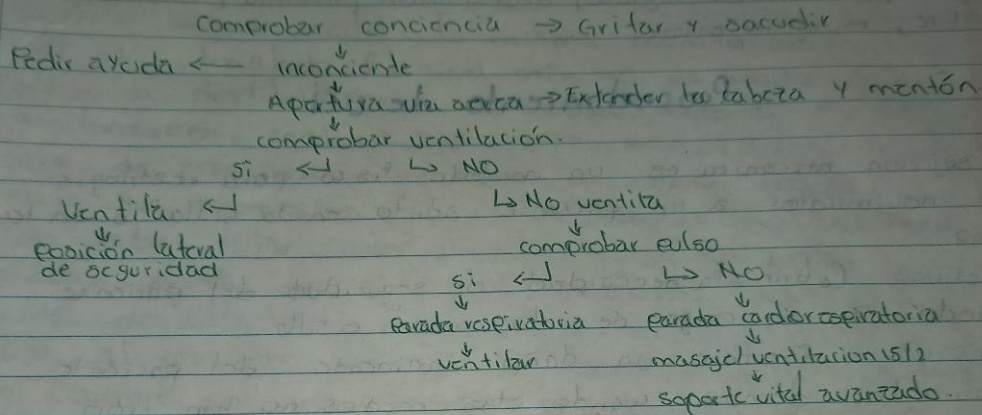 Comprobar conciencia → Gritar y sacudir
Pedir ayuda ← inconciente
Apertura vía aerea → Extender la cabeza y mentón
comprobar ventilación.
si ↵ ↳ NO
Ventila ↵ ↳ No ventila
posición lateral
de seguridad
comprobar pulso
si ↵ ↳ NO
parada respiratoria parada cardiorespiratoria
ventilar masaje/ventilacion 15/2
soporte vital avanzado.